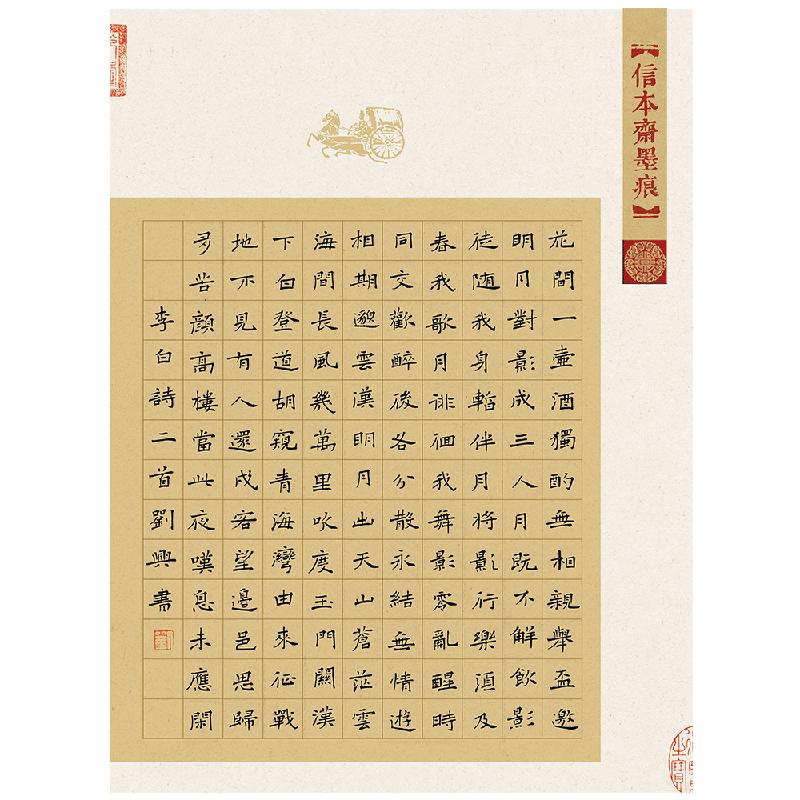 【信本齋墨痕】
花間一壺酒獨酌無相親舉盃邀
明月對影成三人月既不解飲影
徒随我身暫伴月將影行樂須及
春我歌月徘徊我舞影零亂醒時
同交歡醉後各分散永結無情遊
相期邈雲漢明月出天山蒼茫雲
海間長風幾萬里吹度玉門關漢
下白登道胡窺青海灣由來征戰
地不見有人還戍客望邊邑思歸
多苦顏高樓當此夜嘆息未應閑
李白詩二首劉興書